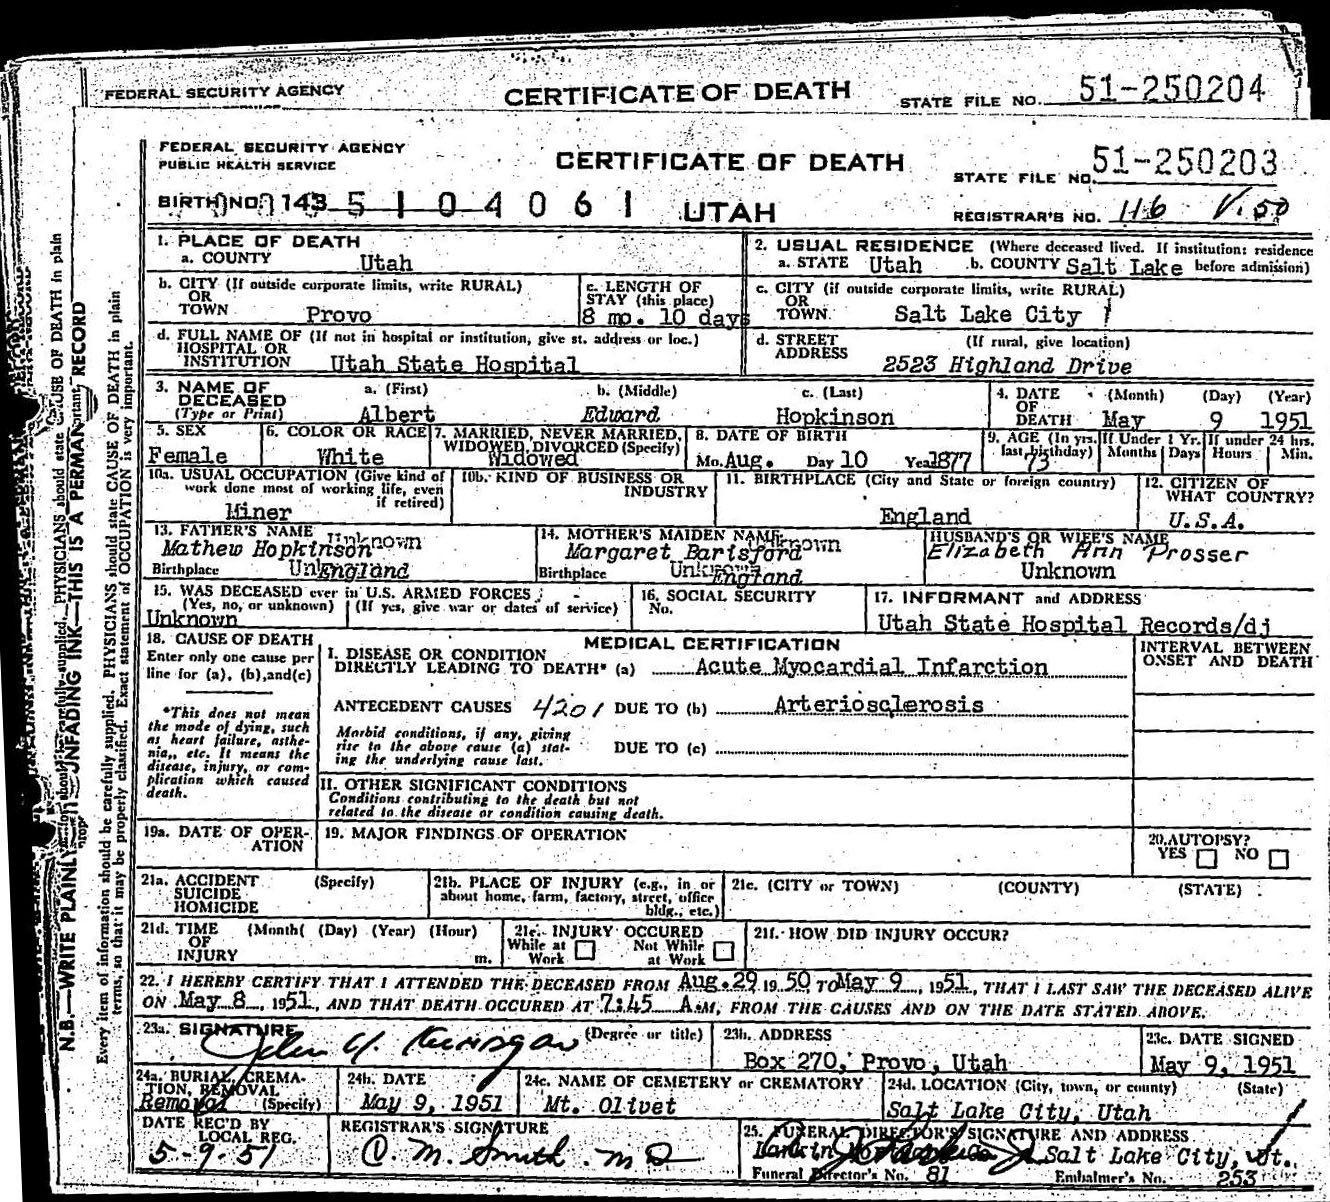 FEDERAL SECURITY AGENCY CERTIFICATE OF DEATH STATE FILE NO. 51-250204
FEDERAL SECURITY AGENCY
PUBLIC HEALTH SERVICE CERTIFICATE OF DEATH STATE FILE NO. 51-250203
BIRTH NO. 143 5104061 UTAH REGISTRAR'S NO. 116 V.50
1. PLACE OF DEATH
a. COUNTY Utah
2. USUAL RESIDENCE (Where deceased lived. If institution: residence
a. STATE Utah b. COUNTY Salt Lake before admission)
b. CITY (If outside corporate limits, write RURAL)
OR
TOWN Provo
c. LENGTH OF
STAY (this place)
8 mo. 10 days
c. CITY (if outside corporate limits, write RURAL)
OR
TOWN. Salt Lake City
d. FULL NAME OF (If not in hospital or institution, give st. address or loc.)
HOSPITAL OR
INSTITUTION Utah State Hospital
d. STREET (If rural, give location)
ADDRESS 2523 Highland Drive
3. NAME OF a. (First) b. (Middle) c. (Last)
DECEASED
(Type or Print) Albert Edward Hopkinson
4. DATE (Month) (Day) (Year)
OF
DEATH May 9 1951
5. SEX
Female
6. COLOR OR RACE
White
7. MARRIED, NEVER MARRIED,
WIDOWED, DIVORCED (Specify)
Widowed
8. DATE OF BIRTH
Mo. Aug. Day 10 Year 1877
9. AGE (In yrs.
last birthday)
73
If Under 1 Yr.
Months Days
If under 24 hrs.
Hours Min.
10a. USUAL OCCUPATION (Give kind of
work done most of working life, even
if retired)
Miner
10b. KIND OF BUSINESS OR
INDUSTRY
11. BIRTHPLACE (City and State or foreign country)
England
12. CITIZEN OF
WHAT COUNTRY?
U.S.A.
13. FATHER'S NAME Unknown
Mathew Hopkinson
Birthplace England
14. MOTHER'S MAIDEN NAME
Margaret Bartsford
Birthplace Unknown England
HUSBAND'S OR WIFE'S NAME
Elizabeth Ann Prosser
Unknown
15. WAS DECEASED ever in U.S. ARMED FORCES
(Yes, no, or unknown) (If yes, give war or dates of service)
Unknown
16. SOCIAL SECURITY
No.
17. INFORMANT and ADDRESS
Utah State Hospital Records/dj
18. CAUSE OF DEATH
Enter only one cause per
line for (a), (b), and (c)
*This does not mean
the mode of dying, such
as heart failure, asthe-
nia, etc. It means the
disease, injury, or com-
plication which caused
death.
MEDICAL CERTIFICATION
I. DISEASE OR CONDITION
DIRECTLY LEADING TO DEATH* (a) Acute Myocardial Infarction
ANTECEDENT CAUSES 4201 DUE TO (b) Arteriosclerosis
Morbid conditions, if any, giving
rise to the above cause (a) stat-
ing the underlying cause last.
DUE TO (c)
II. OTHER SIGNIFICANT CONDITIONS
Conditions contributing to the death but not
related to the disease or condition causing death.
INTERVAL BETWEEN
ONSET AND DEATH
19a. DATE OF OPER-
ATION
19. MAJOR FINDINGS OF OPERATION
20. AUTOPSY?
YES NO
21a. ACCIDENT (Specify)
SUICIDE
HOMICIDE
21b. PLACE OF INJURY (e.g., in or
about home, farm, factory, street, office
bldg., etc.)
21c. (CITY or TOWN) (COUNTY) (STATE)
21d. TIME (Month( (Day) (Year) (Hour)
OF
INJURY m.
21e. INJURY OCCURED
While at Work Not While at Work
21f. HOW DID INJURY OCCUR?
22. I HEREBY CERTIFY THAT I ATTENDED THE DECEASED FROM Aug. 29 19 50 TO May 9, 1951, THAT I LAST SAW THE DECEASED ALIVE
ON May 8 1951, AND THAT DEATH OCCURED AT 7:45 A.M, FROM THE CAUSES AND ON THE DATE STATED ABOVE.
23a. SIGNATURE (Degree or title)
23b. ADDRESS
Box 270, Provo, Utah
23c. DATE SIGNED
May 9, 1951
24a. BURIAL, CREMA-
TION, REMOVAL
Removal (Specify)
24b. DATE
May 9, 1951
24c. NAME OF CEMETERY or CREMATORY
Mt. Olivet
24d. LOCATION (City, town, or county) (State)
Salt Lake City, Utah
DATE REC'D BY
LOCAL REG.
5-9-51
REGISTRAR'S SIGNATURE
C. M. Smith. MD
25. FUNERAL DIRECTOR'S SIGNATURE AND ADDRESS
Larkin Salt Lake City, Ut.
Funeral Director's No. 81 Embalmer's No. 253
N.B.—WRITE PLAINLY UNFADING INK—THIS IS A PERMANENT RECORD
Every item of information should be carefully supplied. PHYSICIANS should state CAUSE OF DEATH in plain
terms, so that it may be properly classified. Exact statement of OCCUPATION is very important.